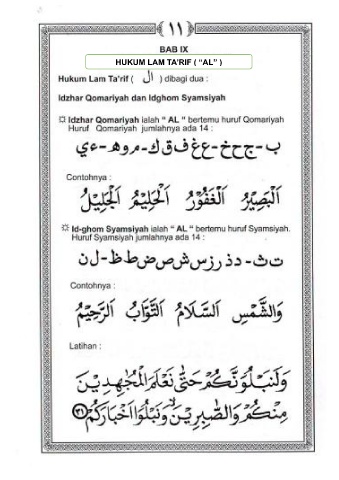 ١١
BAB IX
HUKUM LAM TA'RIF ( “AL” )
Hukum Lam Ta'rif ( ال ) dibagi dua :
Idzhar Qomariyah dan Idghom Syamsiyah
Idzhar Qomariyah ialah “ AL ” bertemu huruf Qomariyah
Huruf Qomariyah jumlahnya ada 14 :
ب - ج ح خ - ع غ ف ق ك - م و ه - ء ي
Contohnya :
اَلْبَصِيْرُ اَلْغَفُوْرُ اَلْحَلِيْمُ اَلْجَلِيْلُ
Id-ghom Syamsiyah ialah “ AL ” bertemu huruf Syamsiyah.
Huruf Syamsiyah jumlahnya ada 14 :
ت ث - د ذ ر ز س ش ص ض ط ظ - ل ن
Contohnya :
وَالشَّمْسِ اَلسَّلَامُ اَلتَّوَّابُ اَلرَّحِيْمُ
Latihan :
وَلَنَبْلُوَنَّكُمْ حَتّٰى نَعْلَمَ الْمُجٰهِدِيْنَ
مِنْكُمْ وَالصّٰبِرِيْنَ وَنَبْلُوَا۟ اَخْبَارَكُمْ ٣١